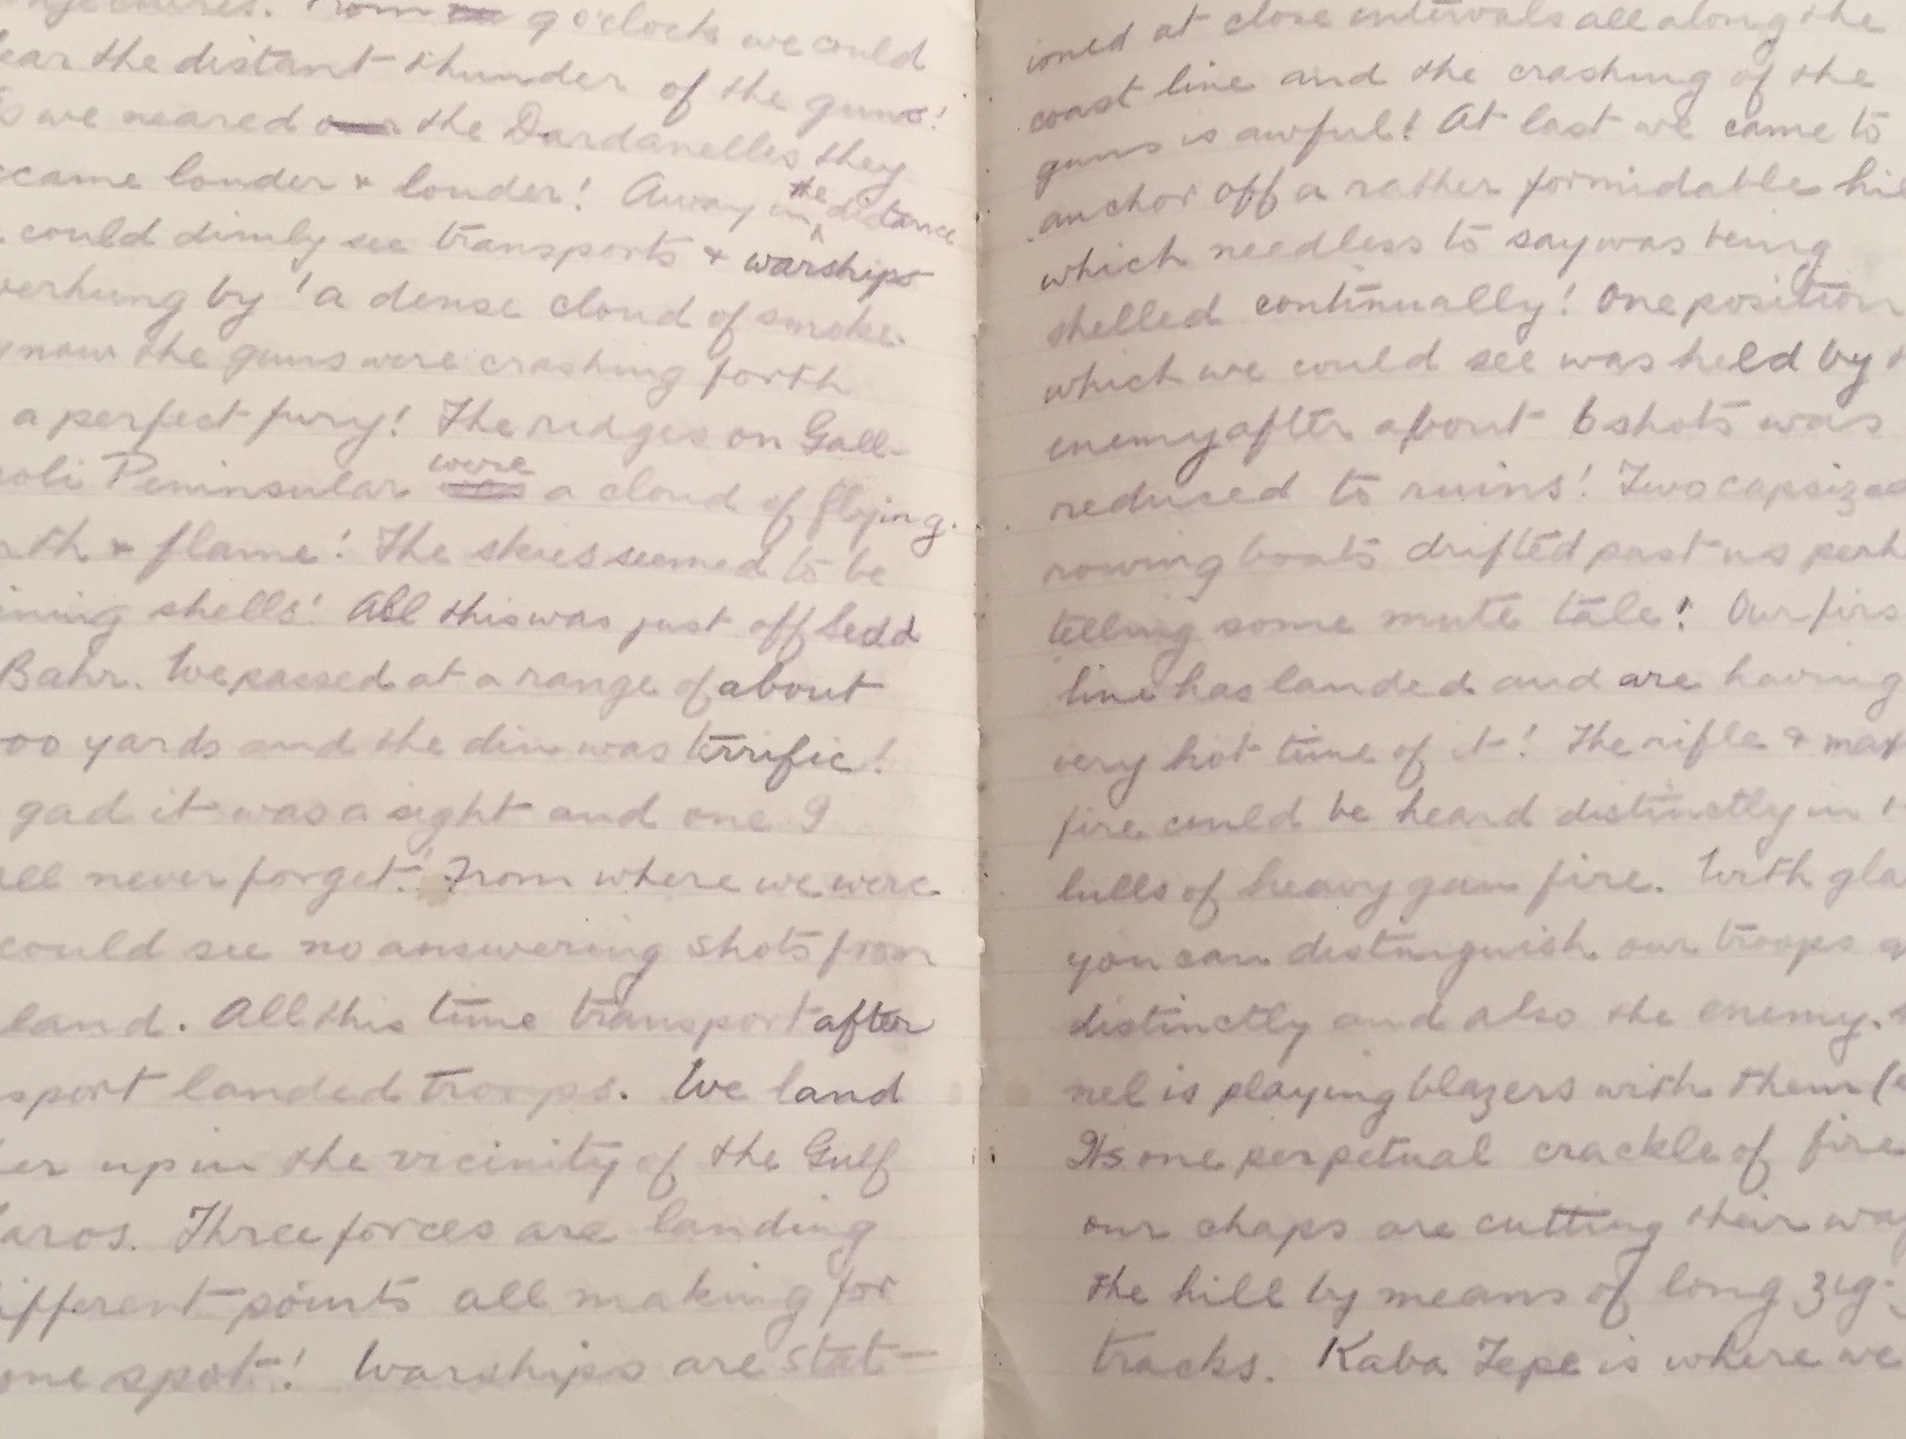 From 9 o'clock we could
ear the distant thunder of the guns!
s we neared the Dardanelles they
came louder & louder! Away in the distance
could dimly see transports & warships
verhung by a dense cloud of smoke.
now the guns were crashing forth
a perfect fury! The ridges on Gall-
poli Peninsular were a cloud of flying
rth & flame! The skies seemed to be
ining shells! All this was just off Sedd
Bahr. We passed at a range of about
00 yards and the din was terrific!
gad it was a sight and one I
all never forget! From where we were
could see no answering shots from
land. All this time transport after
sport landed troops. We land
er up in the vicinity of the Gulf
aros. Three forces are landing
ifferent points all making for
one spot! Warships are stat-
ioned at close intervals all along the
coast line and the crashing of the
guns is awful! At last we came to
anchor off a rather formidable hil
which needless to say was being
shelled continually! One position
which we could see was held by t
enemy after about 6 shots was
reduced to ruins! Two capsized
rowing boats drifted past us perh
telling some mute tale! Our firs
line has landed and are having
very hot time of it! The rifle & max
fire could be heard distinctly in t
lulls of heavy gun fire. With gla
you can distinguish our troops q
distinctly and also the enemy.
nel is playing blazers with them (
Its one perpetual crackle of fire
our chaps are cutting their way
the hill by means of long zig-
tracks. Kaba Tepe is where we